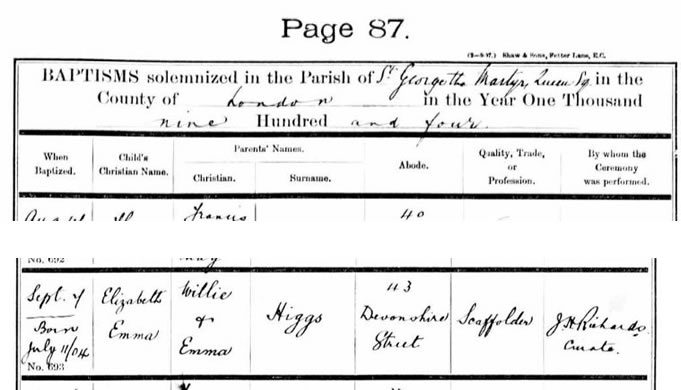 Page 87.
Shaw & Sons, Fetter Lane, E.C.
BAPTISMS solemnized in the Parish of St George the Martyr, Queen Sq. in the
County of London in the Year One Thousand
nine Hundred and four.
When Baptized.
Child's Christian Name.
Parents' Names.
Christian.
Surname.
Abode.
Quality, Trade, or Profession.
By whom the Ceremony was performed.
Francis
40
No. 692
Sept. 4
Born
July 11/04
No. 693
Elizabeth
Emma
Willie
&
Emma
Higgs
43
Devonshire
Street
Scaffolder
J H Richards
Curate.